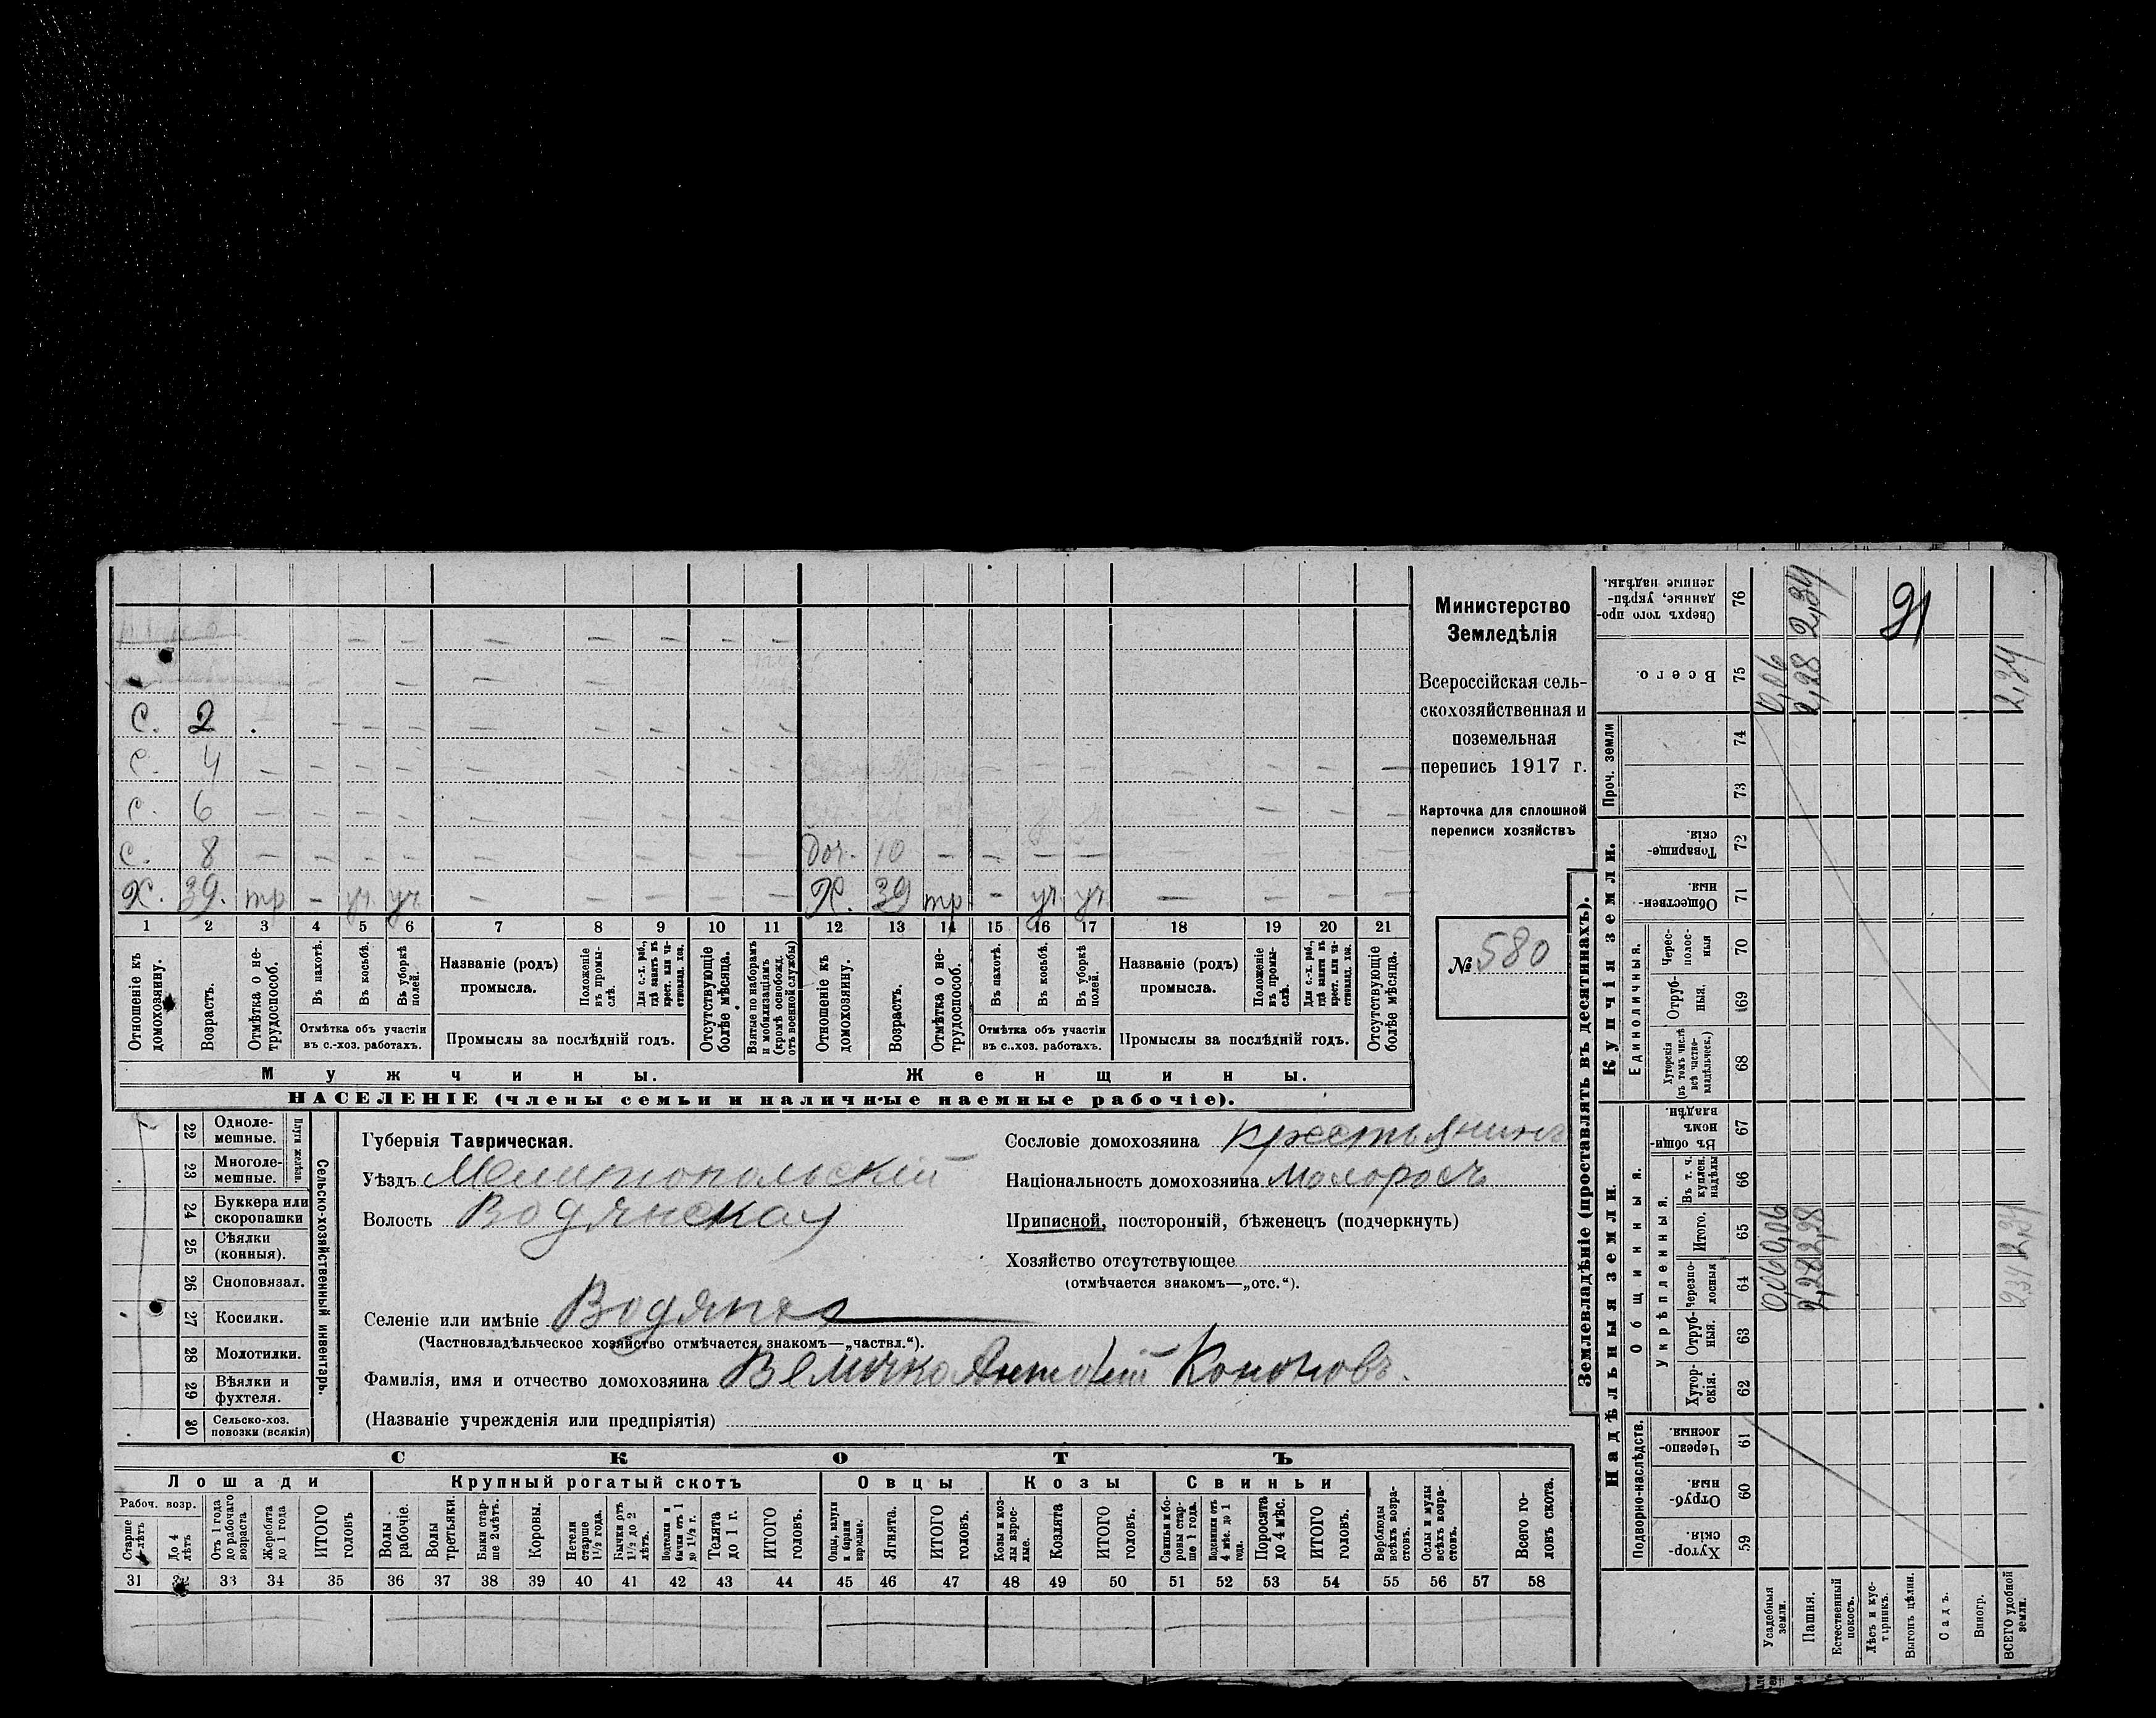 Министерство
Земледѣлія
Всероссійская сель-
скохозяйственная и
поземельная
перепись 1917 г.
Карточка для сплошной
переписи хозяйствъ
№ 580
С. 2
С. 4
С. 6
С. 8 Доч. 10
Х. 39. тр уч уч Х. 39 тр уч уч
1 2 3 4 5 6 7 8 9 10 11 12 13 14 15 16 17 18 19 20 21
Отношеніе къ домохозяину.
Возрастъ.
Отмѣтка о не-трудоспособ.
Въ пахотѣ.
Въ косьбѣ.
Въ уборкѣ полей.
Отмѣтка объ участіи
въ с.-хоз. работахъ.
Названіе (родъ)
промысла.
Положеніе въ промы-слѣ.
Для с.-х. раб., гдѣ занятъ въ крест. или ча-стновлад. хоз.
Промыслы за послѣдній годъ.
Отсутствующіе болѣе мѣсяца.
Взятые по наборамъ и мобилизаціямъ (кромѣ освобожд. отъ военной службы)
Отношеніе къ домохозяину.
Возрастъ.
Отмѣтка о не-трудоспособ.
Въ пахотѣ.
Въ косьбѣ.
Въ уборкѣ полей.
Отмѣтка объ участіи
въ с.-хоз. работахъ.
Названіе (родъ)
промысла.
Положеніе въ промы-слѣ.
Для с.-х. раб., гдѣ заняты въ крест. или ча-стновлад. хоз.
Промыслы за послѣдній годъ.
Отсутствующіе болѣе мѣсяца.
Мужчины. Женщины.
НАСЕЛЕНІЕ (члены семьи и наличные наемные рабочіе).
22 Одноле-мешные.
23 Многоле-мешные.
Плуги желѣзн.
24 Буккера или скоропашки
25 Сѣялки (конныя).
26 Сноповязал.
27 Косилки.
28 Молотилки.
29 Вѣялки и фухтеля.
30 Сельско-хоз. повозки (всякія)
Сельско-хозяйственный инвентарь.
Губернія Таврическая.
Уѣздъ Мелитопольскій
Волость Водянская
Селеніе или имѣніе Водяное
(Частновладѣльческое хозяйство отмѣчается знакомъ—„частвл.“).
Фамилія, имя и отчество домохозяина Величко Антоній Кононовъ.
(Названіе учрежденія или предпріятія)
Сословіе домохозяина Крестьянинъ
Національность домохозяина Малороссъ
Приписной, посторонній, бѣженецъ (подчеркнуть)
Хозяйство отсутствующее
(отмѣчается знакомъ—„отс.“).
СКОТЪ
Лошади Крупный рогатый скотъ Овцы Козы Свиньи
Рабоч. возр.
Старше 4 лѣтъ
До 4 лѣтъ
Отъ 1 года до рабочаго возраста
Жеребята до 1 года
ИТОГО головъ
Волы рабочіе.
Волы третьяки.
Быки стар-ше 2 лѣтъ.
Коровы.
Нетели старше 1½ года.
Бычки отъ 1½ до 2 лѣтъ.
Подтелки и бычки отъ 1 до 1½ г.
Телята до 1 г.
ИТОГО головъ.
Овцы, валухи и бараны взрослые.
Ягнята.
ИТОГО головъ.
Козы и коз-лы взрос-лые.
Козлята
ИТОГО головъ.
Свиньи и бо-ровы стар-ше 1 года.
Подсвинки отъ 4 мѣс. до 1 года.
Поросята до 4 мѣс.
ИТОГО головъ.
Верблюды всѣхъ возра-стовъ.
Ослы и мулы всѣхъ возра-стовъ.
Всего го-ловъ скота.
31 32 33 34 35 36 37 38 39 40 41 42 43 44 45 46 47 48 49 50 51 52 53 54 55 56 57 58
Землевладѣніе (проставлять въ десятинахъ).
Надѣльныя земли. Купчія земли. Проч. земли
Подворно-наслѣдств. Общинныя. Укрѣпленныя. Единоличныя.
Хутор-скія. 59
Отруб-ныя. 60
Черезпо-лосныя. 61
Хутор-скія. 62
Отруб-ныя. 63
Черезпо-лосныя 64 0,06 2,28 2,34
Итого. 65 0,06 2,28 2,34
Въ т. ч. куплен. надѣлы 66
Въ общи-номъ владѣн. 67
Хуторскія (въ томъ числѣ всѣ частно-владѣльческ.) 68
Отруб-ныя. 69
Черес-полос-ныя 70
Обществен-ныя. 71
Товарище-скія. 72
73
74
Всего. 75 0,06 2,28 2,34
Сверхъ того про-данные, укрѣп-ленные надѣлы. 76 2,34
91
Усадебныя земли.
Пашня.
Естественный покосъ.
Лѣсъ и кус-тарникъ.
Выгонъ цѣлин.
Садъ.
Виногр.
ВСЕГО удобной земли.